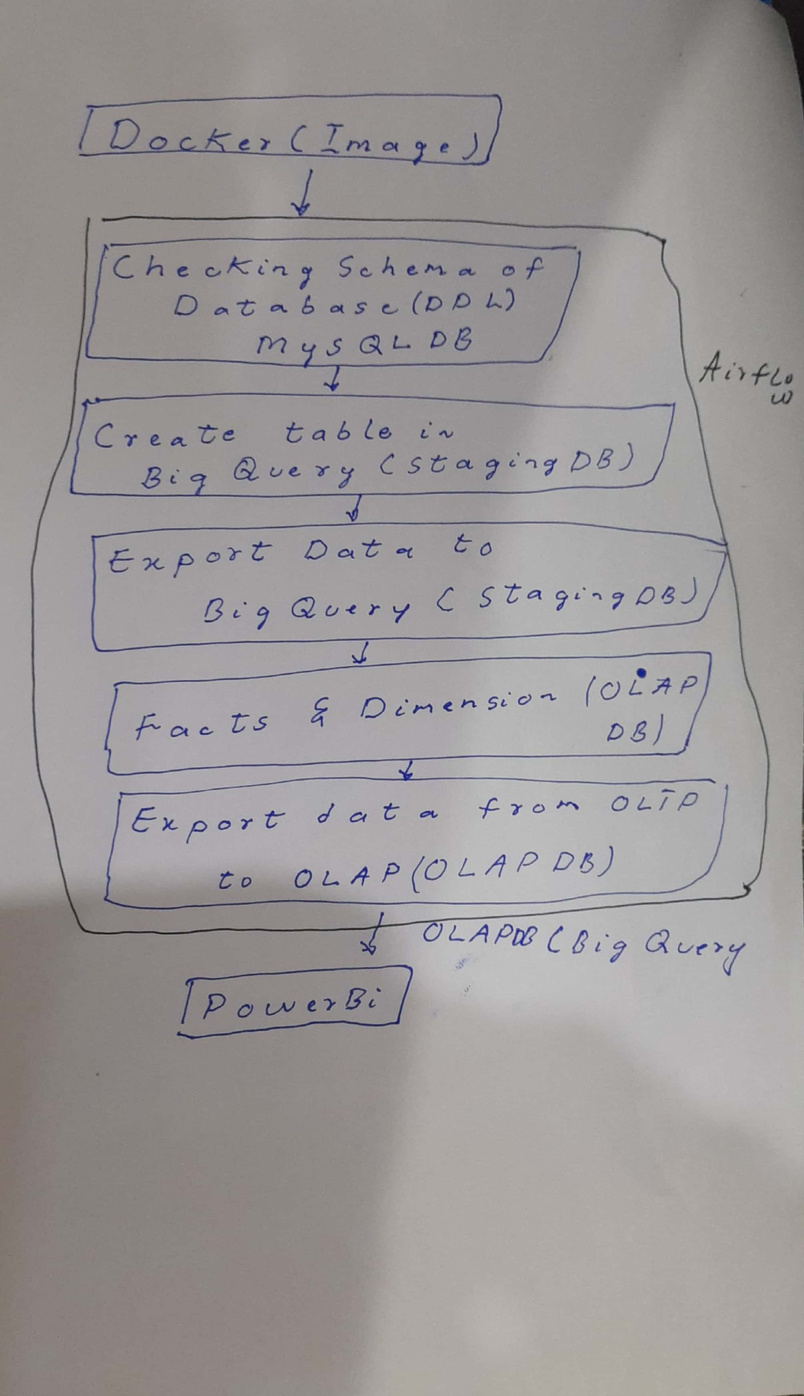 Docker (Image)
Checking Schema of
Database (DDL)
MySQL DB
Airflo
w
Create table in
Big Query (staging DB)
Export Data to
Big Query (staging DB)
Facts & Dimension (OLAP
DB)
Export data from OLTP
to OLAP (OLAP DB)
OLAPDB (Big Query
PowerBi